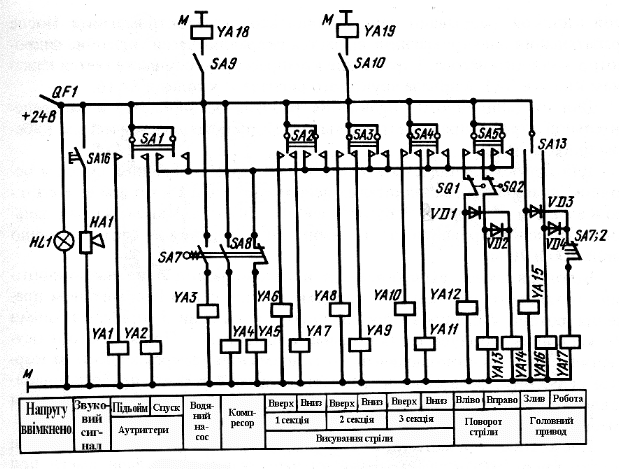 M M
YA18 YA19
SA9 SA10
QF1
+24В
SA1 SA2 SA3 SA4 SA5 SA13
SA16
SQ1 SQ2
VD1 VD3
VD2 VD4
HL1 HA1 SA7 SA8 SA7;2
YA3 YA6 YA8 YA10 YA12 YA15
YA1 YA2 YA4 YA5 YA7 YA9 YA11 YA13 YA14 YA16 YA17
M
Напругу ввімкнено
Звуковий сигнал
Підьойм Спуск
Аутриггери
Водяний насос
Компресор
Вверх Вниз Вверх Вниз Вверх Вниз
1 секція 2 секція 3 секція
Висування стріли
Вліво Вправо
Поворот стріли
Злив Робота
Головний привод